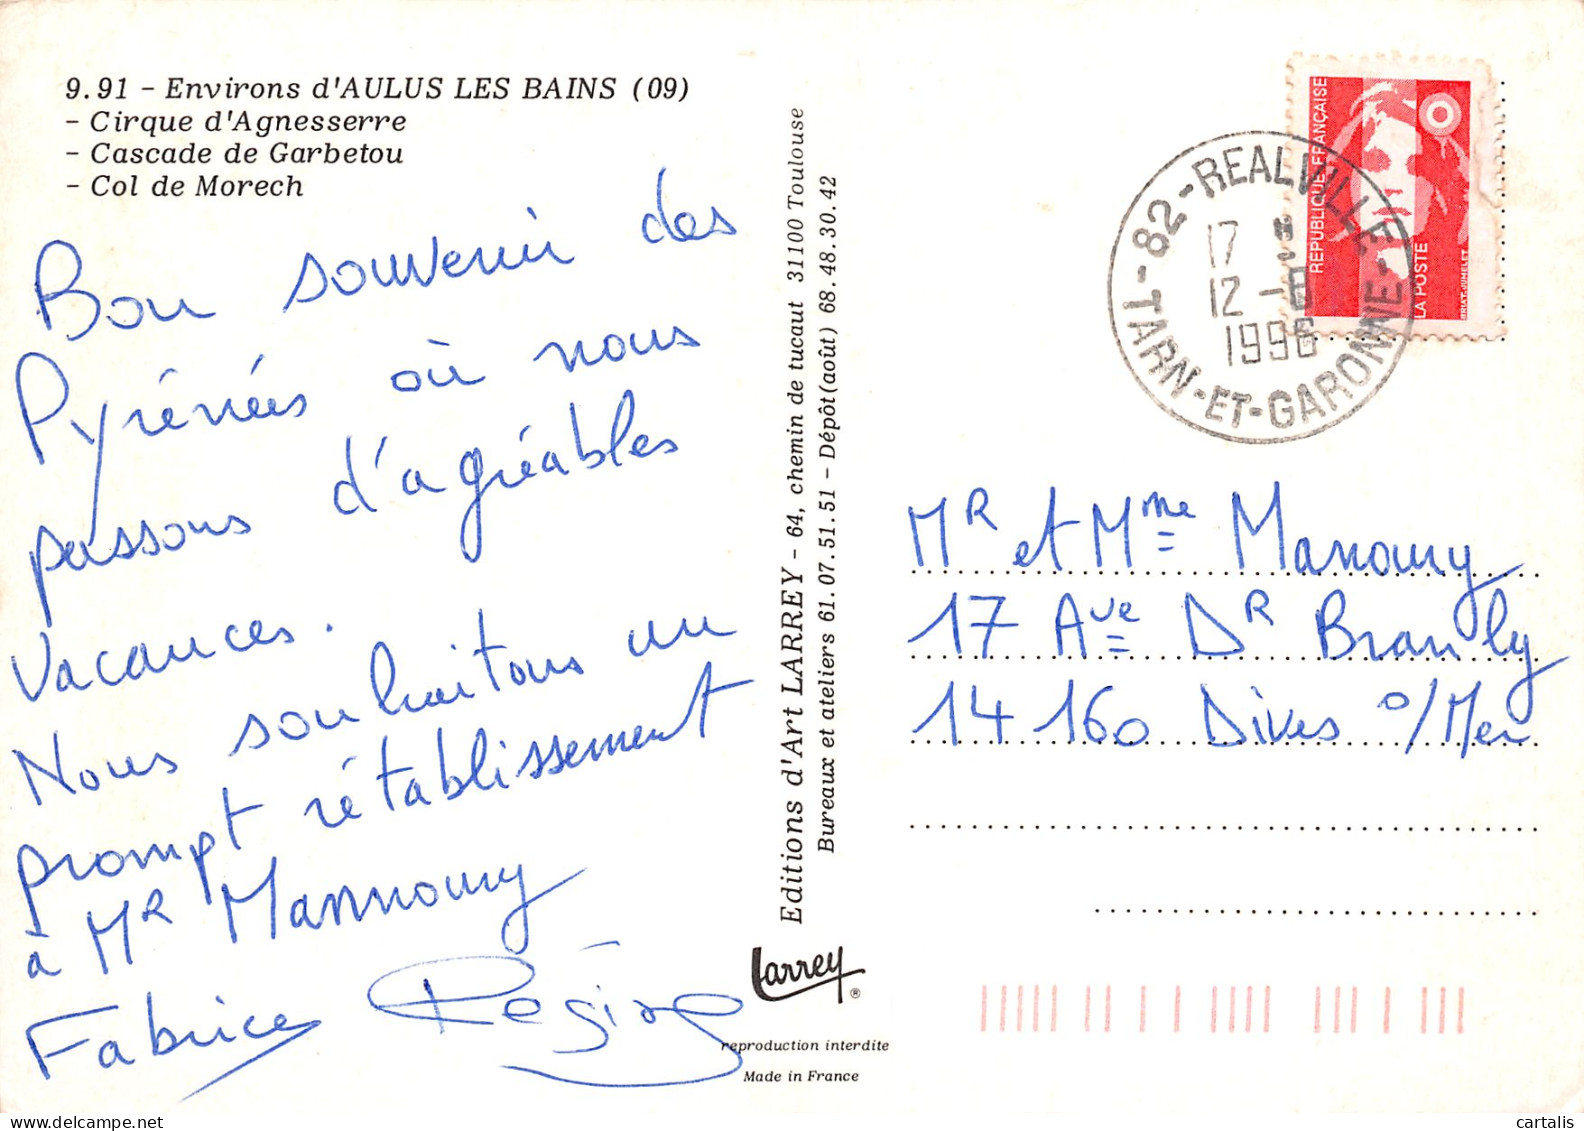 9.91 - Environs d'AULUS LES BAINS (09)
- Cirque d'Agnesserre
- Cascade de Garbetou
- Col de Morech
Bon souvenir des
Pyrénées où nous
passons d'agréables
vacances.
Nous souhaitons un
prompt rétablissement
à MR Mannoury
Fabrice Régine
Editions d'Art LARREY - 64, chemin de tuccaut 31100 Toulouse
Bureaux et ateliers 61.07.51.51 - Dépôt(août) 68.48.30.42
Larrey ®
reproduction interdite
Made in France
RÉPUBLIQUE FRANÇAISE
LA POSTE
BRIAT-JUMELET
82-REALVILLE
TARN-ET-GARONNE
17 H
12 -8
1996
MR et Mme Manoury
17 Ave DR Branly
14 160 Dives s/Mer
cartalis